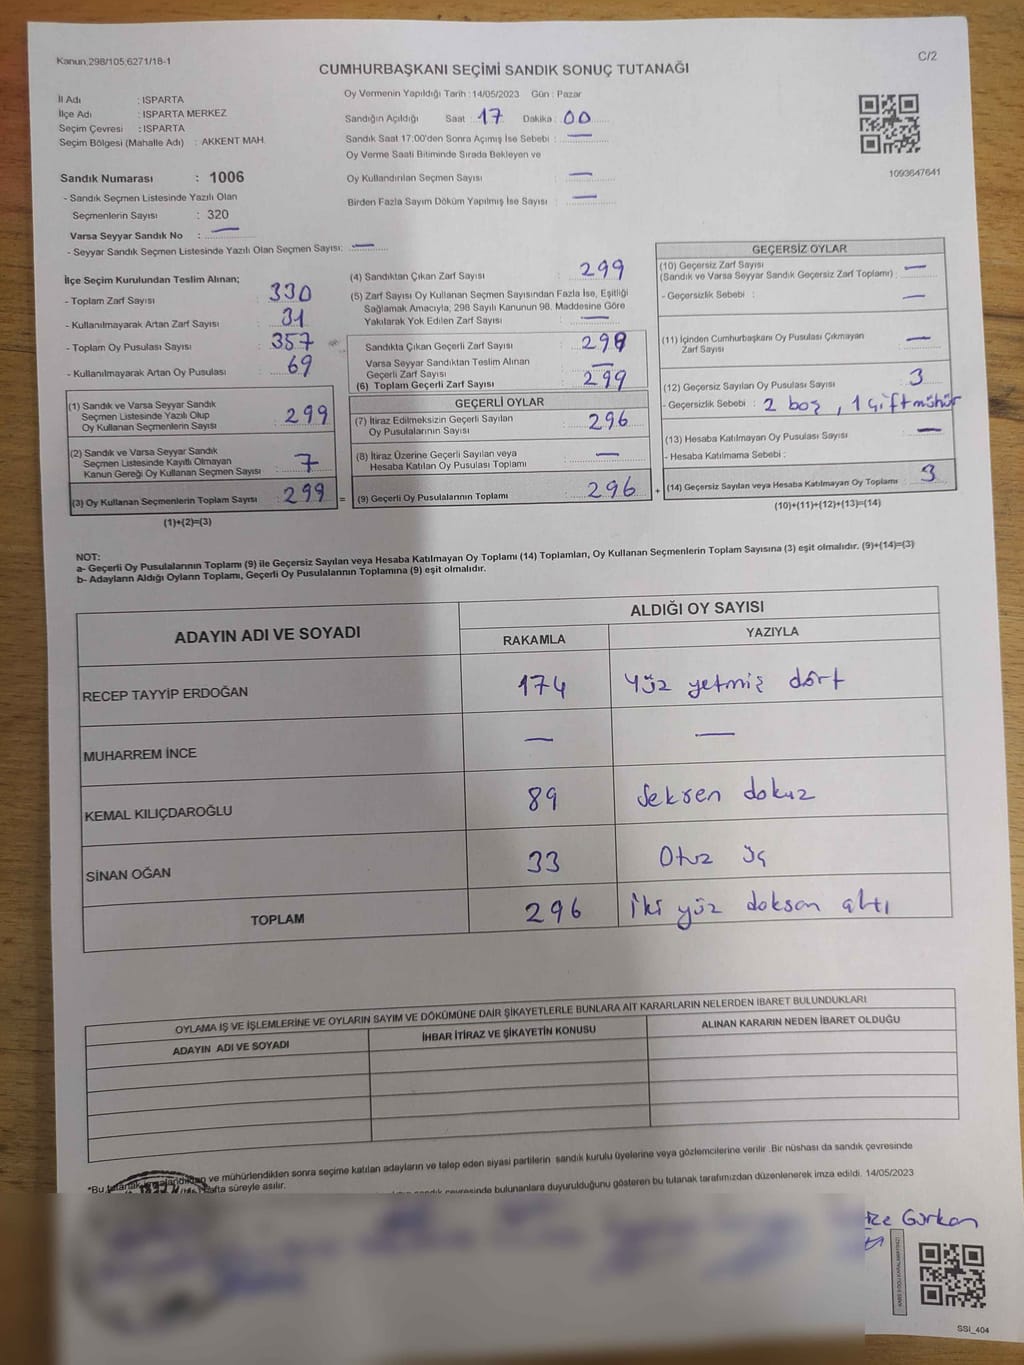 Kanun;298/105;6271/18-1
C/2
CUMHURBAŞKANI SEÇİMİ SANDIK SONUÇ TUTANAĞI
İl Adı : ISPARTA
İlçe Adı : ISPARTA MERKEZ
Seçim Çevresi : ISPARTA
Seçim Bölgesi (Mahalle Adı) : AKKENT MAH.
Oy Vermenin Yapıldığı Tarih : 14/05/2023 Gün : Pazar
Sandığın Açıldığı Saat : 17 Dakika : 00
Sandık Saat 17:00'den Sonra Açımış İse Sebebi : —
Oy Verme Saati Bitiminde Sırada Bekleyen ve
Oy Kullandırılan Seçmen Sayısı : —
Birden Fazla Sayım Döküm Yapılmış İse Sayısı : —
1093647641
Sandık Numarası : 1006
- Sandık Seçmen Listesinde Yazılı Olan
Seçmenlerin Sayısı : 320
Varsa Seyyar Sandık No : —
- Seyyar Sandık Seçmen Listesinde Yazılı Olan Seçmen Sayısı: —
İlçe Seçim Kurulundan Teslim Alınan;
- Toplam Zarf Sayısı : 330
- Kullanılmayarak Artan Zarf Sayısı : 31
- Toplam Oy Pusulası Sayısı : 357
- Kullanılmayarak Artan Oy Pusulası : 69
(1) Sandık ve Varsa Seyyar Sandık
Seçmen Listesinde Yazılı Olup
Oy Kullanan Seçmenlerin Sayısı : 299
(2) Sandık ve Varsa Seyyar Sandık
Seçmen Listesinde Kayıtlı Olmayan
Kanun Gereği Oy Kullanan Seçmen Sayısı : 7
(3) Oy Kullanan Seçmenlerin Toplam Sayısı : 299 =
(1)+(2)=(3)
(4) Sandıktan Çıkan Zarf Sayısı : 299
(5) Zarf Sayısı Oy Kullanan Seçmen Sayısından Fazla İse, Eşitliği
Sağlamak Amacıyla, 298 Sayılı Kanunun 98. Maddesine Göre
Yakılarak Yok Edilen Zarf Sayısı : —
Sandıkta Çıkan Geçerli Zarf Sayısı : 299
Varsa Seyyar Sandıktan Teslim Alınan
Geçerli Zarf Sayısı : —
(6) Toplam Geçerli Zarf Sayısı : 299
GEÇERLİ OYLAR
(7) İtiraz Edilmeksizin Geçerli Sayılan
Oy Pusulalarının Sayısı : 296
(8) İtiraz Üzerine Geçerli Sayılan veya
Hesaba Katılan Oy Pusulası Toplamı : —
(9) Geçerli Oy Pusulalarının Toplamı : 296 +
GEÇERSİZ OYLAR
(10) Geçersiz Zarf Sayısı
(Sandık ve Varsa Seyyar Sandık Geçersiz Zarf Toplamı) : —
- Geçersizlik Sebebi : —
(11) İçinden Cumhurbaşkanı Oy Pusulası Çıkmayan
Zarf Sayısı : —
(12) Geçersiz Sayılan Oy Pusulası Sayısı : 3
- Geçersizlik Sebebi : 2 boş , 1 çift mühür
(13) Hesaba Katılmayan Oy Pusulası Sayısı : —
- Hesaba Katılmama Sebebi :
(14) Geçersiz Sayılan veya Hesaba Katılmayan Oy Toplamı : 3
(10)+(11)+(12)+(13)=(14)
NOT:
a- Geçerli Oy Pusulalarının Toplamı (9) ile Geçersiz Sayılan veya Hesaba Katılmayan Oy Toplamı (14) Toplamları, Oy Kullanan Seçmenlerin Toplam Sayısına (3) eşit olmalıdır. (9)+(14)=(3)
b- Adayların Aldığı Oyların Toplamı, Geçerli Oy Pusulalarının Toplamına (9) eşit olmalıdır.
ADAYIN ADI VE SOYADI ALDIĞI OY SAYISI
RAKAMLA YAZIYLA
RECEP TAYYİP ERDOĞAN 174 Yüz yetmiş dört
MUHARREM İNCE — —
KEMAL KILIÇDAROĞLU 89 Seksen dokuz
SİNAN OĞAN 33 Otuz üç
TOPLAM 296 İki yüz doksan altı
OYLAMA İŞ VE İŞLEMLERİNE VE OYLARIN SAYIM VE DÖKÜMÜNE DAİR ŞİKAYETLERLE BUNLARA AİT KARARLARIN NELERDEN İBARET BULUNDUKLARI
ADAYIN ADI VE SOYADI İHBAR İTİRAZ VE ŞİKAYETİN KONUSU ALINAN KARARIN NEDEN İBARET OLDUĞU
*Bu tutanak ve mühürlendikten sonra seçime katılan adayların ve talep eden siyasi partilerin sandık kurulu üyelerine veya gözlemcilerine verilir. Bir nüshası da sandık çevresinde
hafta süreyle asılır.
sandık çevresinde bulunanlara duyurulduğunu gösteren bu tutanak tarafımızdan düzenlenerek imza edildi. 14/05/2023
Gürkan
SSİ_404